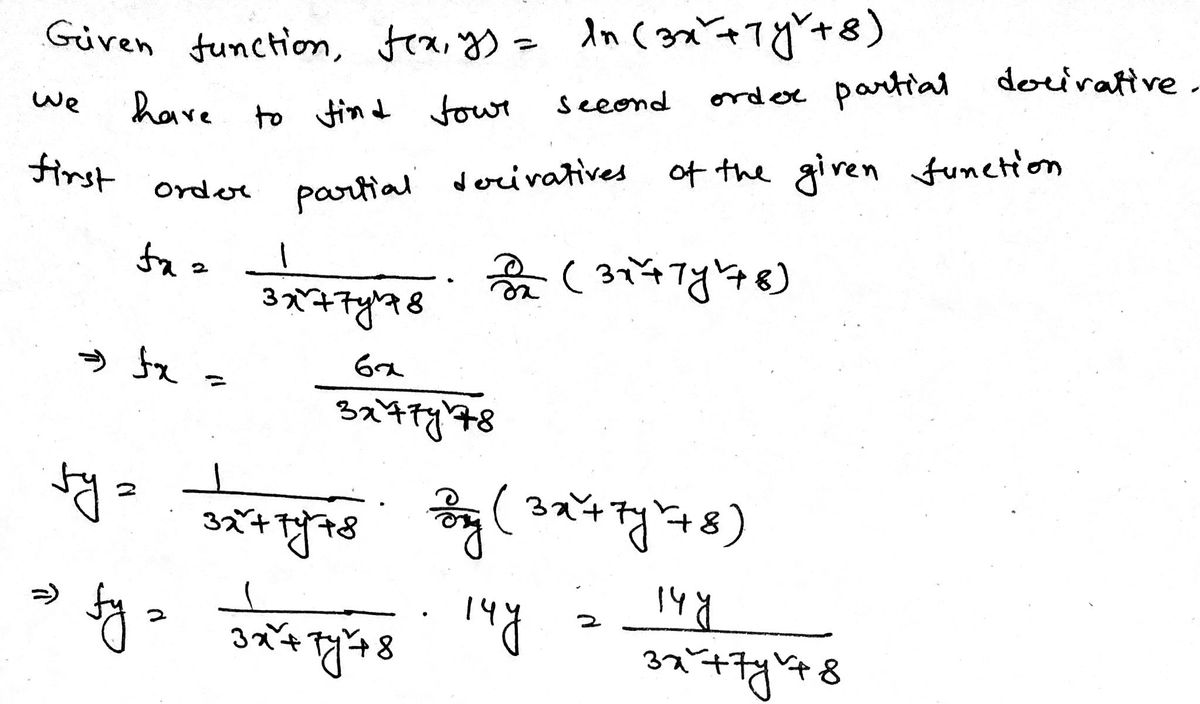 Given function, f(x,y) = ln (3x²+7y²+8)
We have to find four second order partial derivative.
first order partial derivatives of the given function
fx = 1/(3x²+7y²+8) · ∂/∂x (3x²+7y²+8)
⇒ fx = 6x/(3x²+7y²+8)
fy = 1/(3x²+7y²+8) · ∂/∂y (3x²+7y²+8)
⇒ fy = 1/(3x²+7y²+8) · 14y = 14y/(3x²+7y²+8)